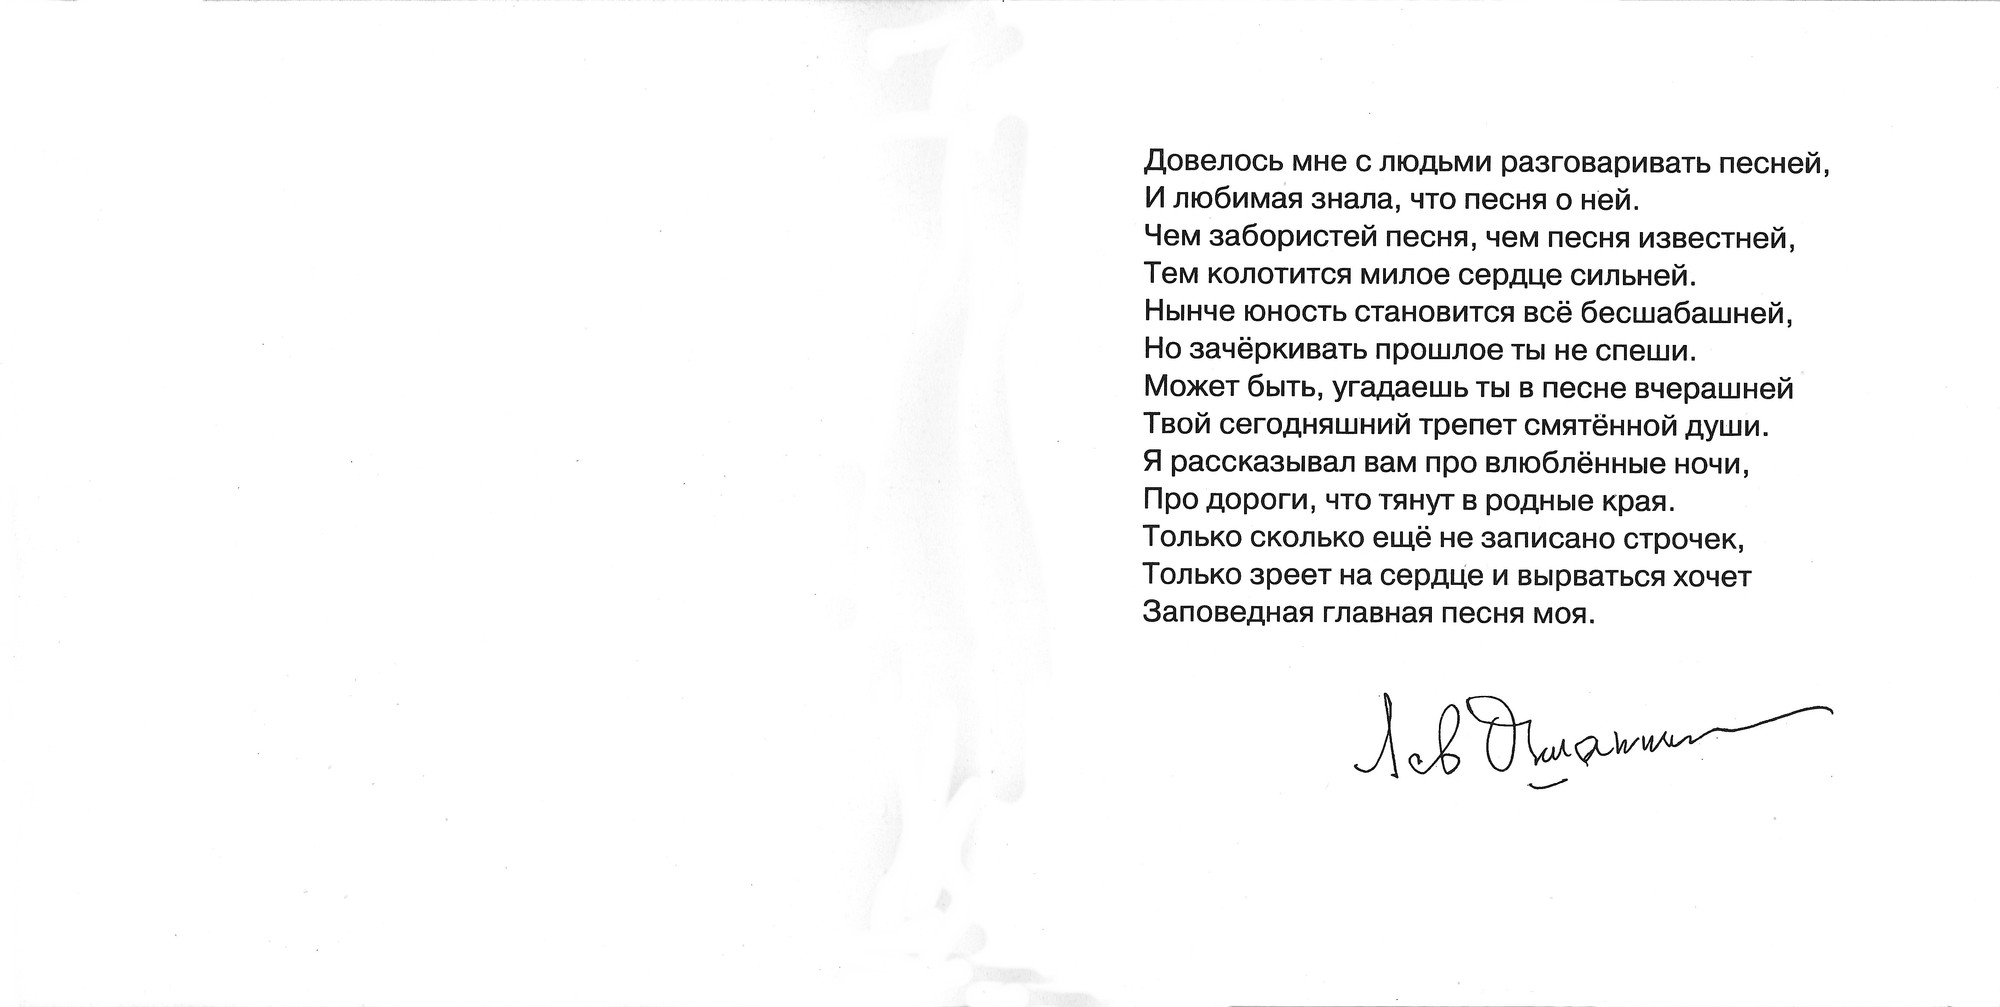 Довелось мне с людьми разговаривать песней,
И любимая знала, что песня о ней.
Чем забористей песня, чем песня известней,
Тем колотится милое сердце сильней.
Нынче юность становится всё бесшабашней,
Но зачёркивать прошлое ты не спеши.
Может быть, угадаешь ты в песне вчерашней
Твой сегодняшний трепет смятённой души.
Я рассказывал вам про влюблённые ночи,
Про дороги, что тянут в родные края.
Только сколько ещё не записано строчек,
Только зреет на сердце и вырваться хочет
Заповедная главная песня моя.
Лев Ошанин